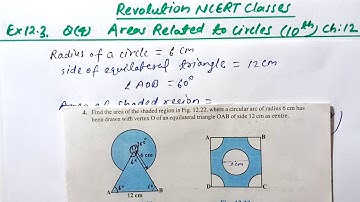 Revolution NCERT Classes
Ex 12.3. Q(4) Areas Related to Circles (10th) Ch:12
Radius of a circle = 6 cm
side of equilateral triangle = 12cm
∠AOB = 60°
Area of shaded region =
4. Find the area of the shaded region in Fig. 12.22, where a circular arc of radius 6 cm has
been drawn with vertex O of an equilateral triangle OAB of side 12 cm as centre.
6 cm
A B
12 cm
A B
2cm
D C